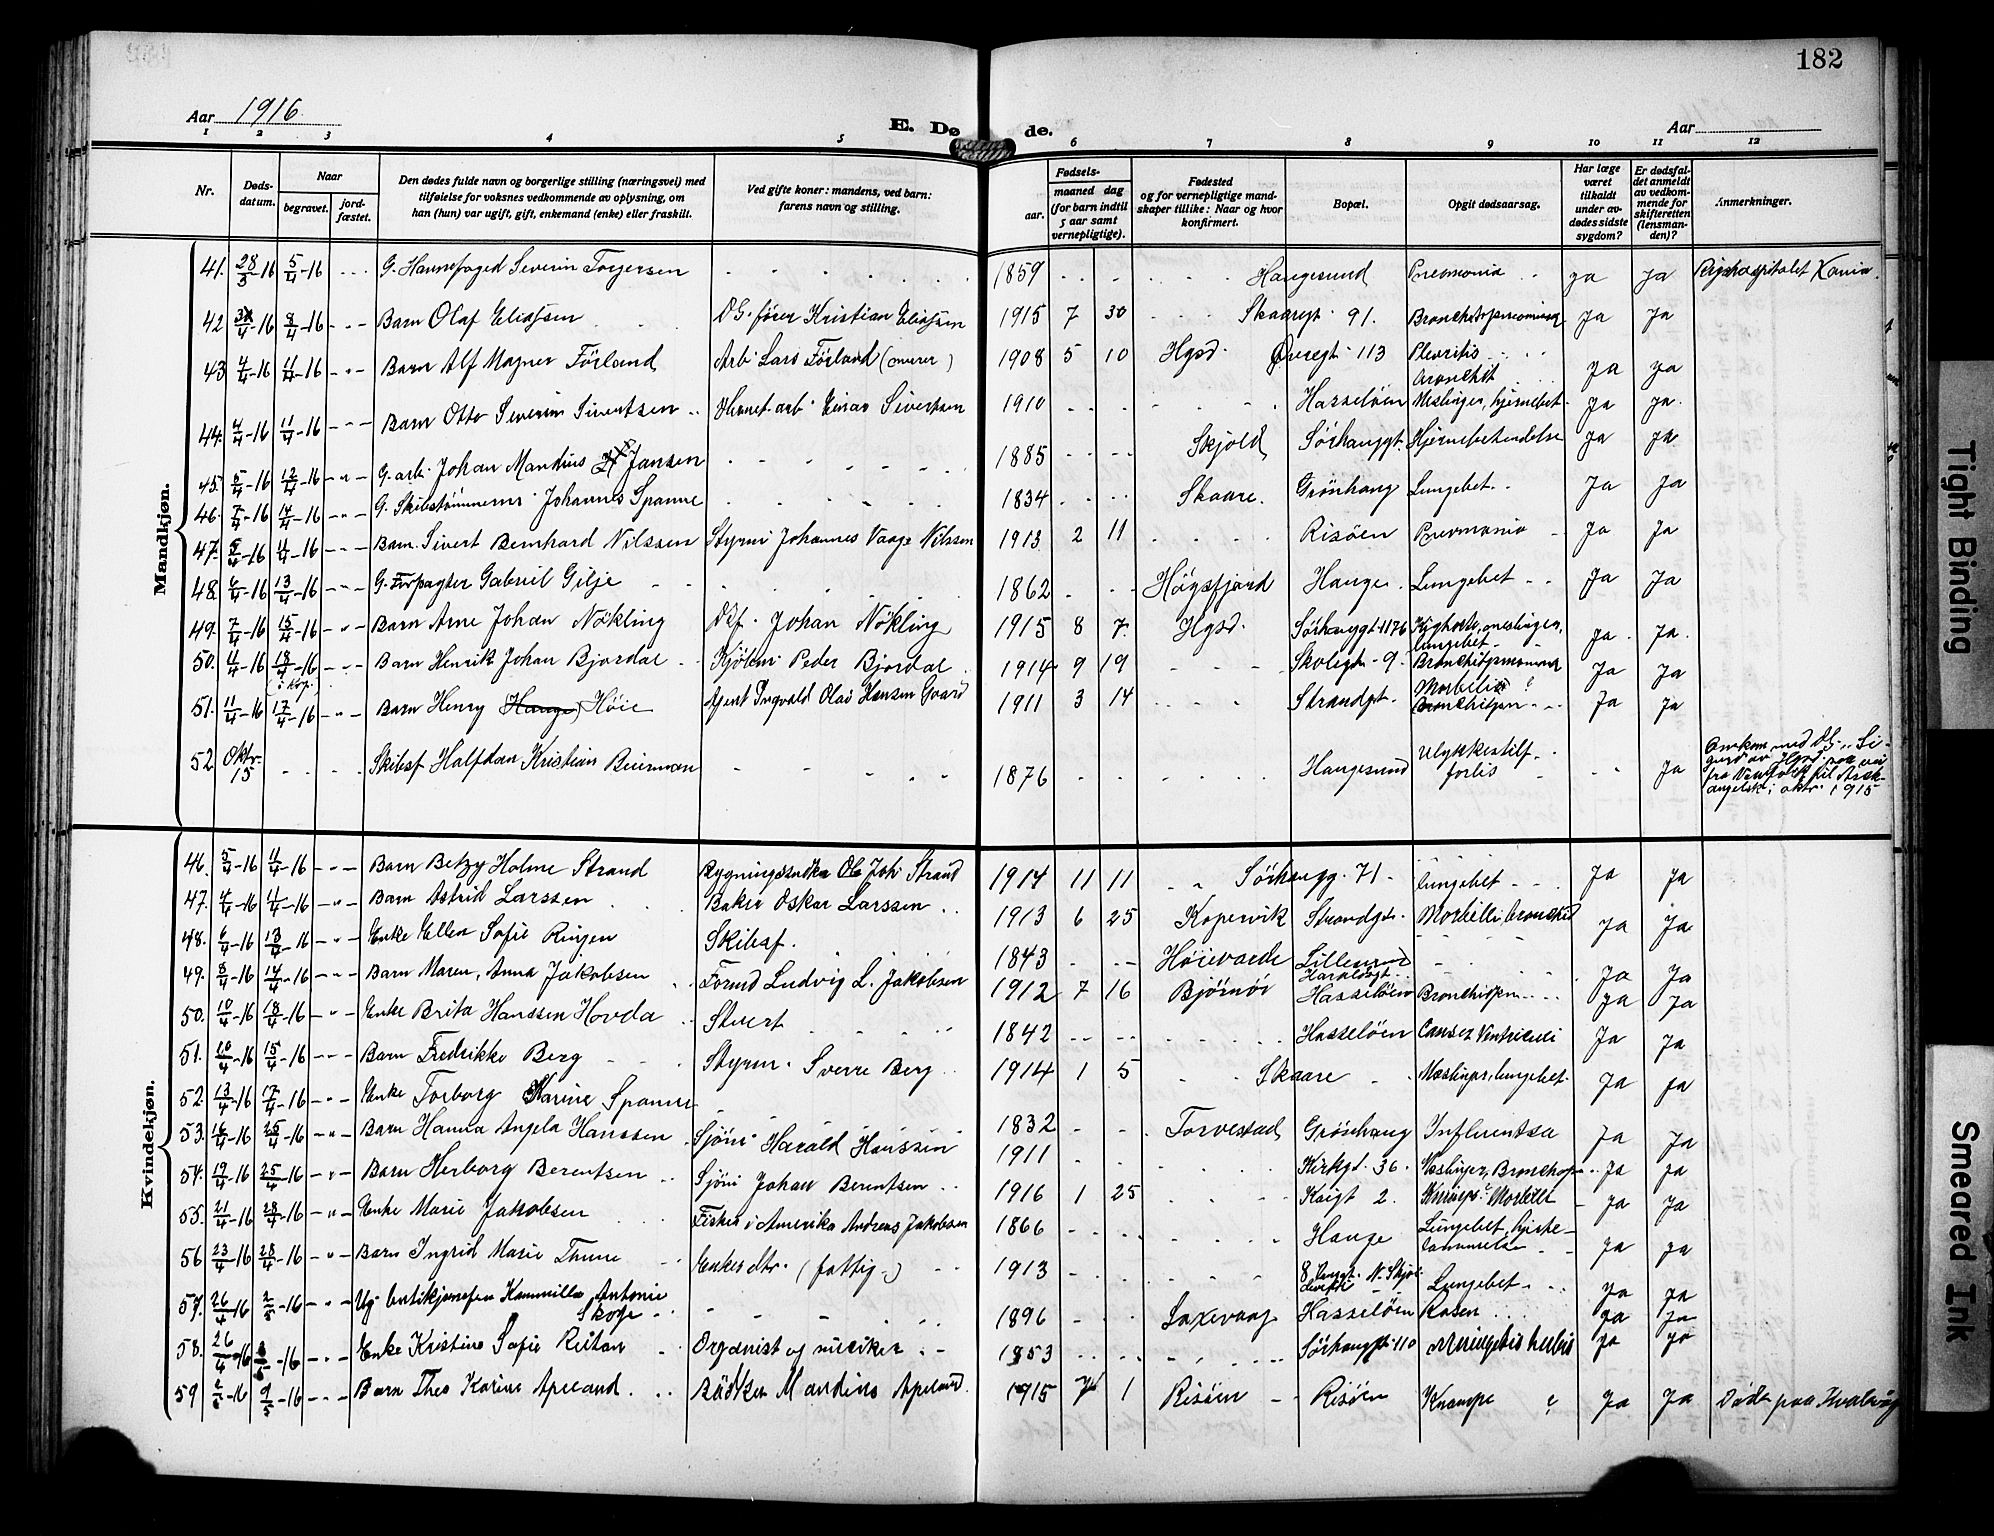 182
Aar 1916
E. Dø de.
Aar
1 2 3 4 5 6 7 8 9 10 11 12
Nr.
Døds-
datum.
Naar
begravet.
jord-
fæstet.
Den dødes fulde navn og borgerlige stilling (næringsvei) med
tilføielse for voksnes vedkommende av oplysning, om
han (hun) var ugift, gift, enkemand (enke) eller fraskilt.
Ved gifte koner: mandens, ved barn:
farens navn og stilling.
Fødsels-
aar.
maaned dag
(for barn indtil
5 aar samt
vernepligtige).
Fødested
og for vernepligtige mand-
skaper tillike: Naar og hvor
konfirmert.
Bopæl.
Opgit dødsaarsag.
Har læge
været
tilkaldt
under av-
dødes sidste
sygdom?
Er dødsfal-
det anmeldt
av vedkom-
mende for
skifteretten
(lensman-
den)?
Anmerkninger.
Mandkjøn.
41. 28/3-16 5/4-16 G. Severin Torgersen 1859 Haugesund Pneomonia ja ja Rigshospitalet Kania.
42 /4-16 8/4-16 Barn Olaf Eliassen Kristian Eliassen 1915 7 30 Skaaregt. 91. Ja Ja
43 4/4-16 11/4-16 Barn Alf Magner Förland Arb. Lars Förland (murer) 1908 5 10 Hgsd. Övregt. 113 Pleuritis Ja ja
44. 4/4-16 11/4-16 Barn Otto Severin Sivertsen Einar Sivertsen 1910 Hasselöen Meslinger, hjernebet. Ja ja.
45. 5/4-16 12/4-16 G. arb. Johan Mandius Jansen 1885 Skjold Sörhauggt. Hjernebetendelse Ja Ja
46. 7/4-16 14/4-16 G. Skibstömmerm. Johannes Spanne 1834 Skaare. Grönhaug Lungebet. Ja Ja
47. /4-16 11/4-16 Barn Sivert Bernhard Nilssen Styrm. Johannes Vaage Nilssen 1913 2 11 Risöen Pneomonia Ja Ja
48. 6/4-16 13/4-16 G. Forpagter Gabriel Gilje 1862 Högsfjord Hauge. Lungebet Ja Ja
49. 7/4-16 15/4-16 Barn Arne Johan Nökling Johan Nökling 1915 8 7 Hgsd. Sörhauggt. 176 Kighoste, meslinger, lungebet. Ja. Ja.
50. 11/4-16 18/4-16 Barn Henrik Johan Bjordal Peder Bjordal 1914 9 19 Skolegt. 9. Ja Ja
51. 11/4-16 17/4-16 Barn Henry (Hauge) Höie Agent Ingvald Olai Hansen 1911 3 14 Strandgt. Ja Ja
52 Oktr. 15 Skibsf Halfdan Kristian 1876 Haugesund Ulykkestilf. forlis Ja
Omkom med "Si-
gurd" av Hgsd.
fra til Ark-
angelsk i oktr. 1915
Kvindekjøn.
46. 5/4-16 11/4-16 Barn Betzy Holme Strand Ole Joh. Strand 1914 11 11 Sörhaugg. 71 Lungebet Ja Ja
47. 4/4-16 11/4-16 Barn Astrid Larssen Baker Oskar Larssen 1913 6 25 Kopervik Strandgt. Ja Ja
48. 6/4-16 13/4-16 Enke Ellen Sofie Ringen Skibsf. 1843 Höievarde Lillesund Ja Ja
49. 8/4-16 14/4-16 Barn Maren, Anna Jakobsen Formd Ludvig L. Jakobsen 1912 7 16 Bjørnör Haraldsgt. Hasselöen Ja Ja
50. 10/4-16 18/4-16 Enke Brita Hanssen Hovda Stuert 1842 Hasselöen Cancer Ventriculi Ja Ja
51. 10/4-16 15/4-16 Barn Fredrikke Berg Styrm. Sverre Berg 1914 1 5 Skaare Meslinger, lungebet. Ja Ja
52 13/4-16 17/4-16 Enke Torborg Karine Spanne 1832 Torvestad Grönhaug Influentsa Ja Ja
53. 16/4-16 25/4-16 Barn Hanna Angela Hanssen Sjöm. Harald Hanssen 1911 Kirkgt. 36. Ja Ja
54. 19/4-16 25/4-16 Barn Herborg Berentsen Sjöm Johan Berentsen 1916 1 25 Kaigt 2. Ja Ja
55. 21/4-16 28/4-16 Enke Marie Jakobsen Fisker i Amerika Andreas Jakobsen 1866 Hauge Lungebet, hjerte-
lammelse Ja Ja
56 23/4-16 28/4-16 Barn Ingrid Marie Thune Enkes dtr. (fattig) 1913 Lungebet. Ja Ja
57. 26/4-16 2/5-16 Ug. Kammilla Antonie
Skoge 1896 Saxevaag Hasselöen Rosen Ja Ja
58. 26/4-16 /5-16 Enke Kristine Sofie Reitan Organist og musiker 1853 Sörhauggt. 110 Ja Ja
59 2/5-16 9/5-16 Barn Thea Karine Apeland Bödker Mandius Apeland. 1915 1 Risöen Risöen Krampe ? Ja Ja Döde paa
Tight Binding
Smeared Ink